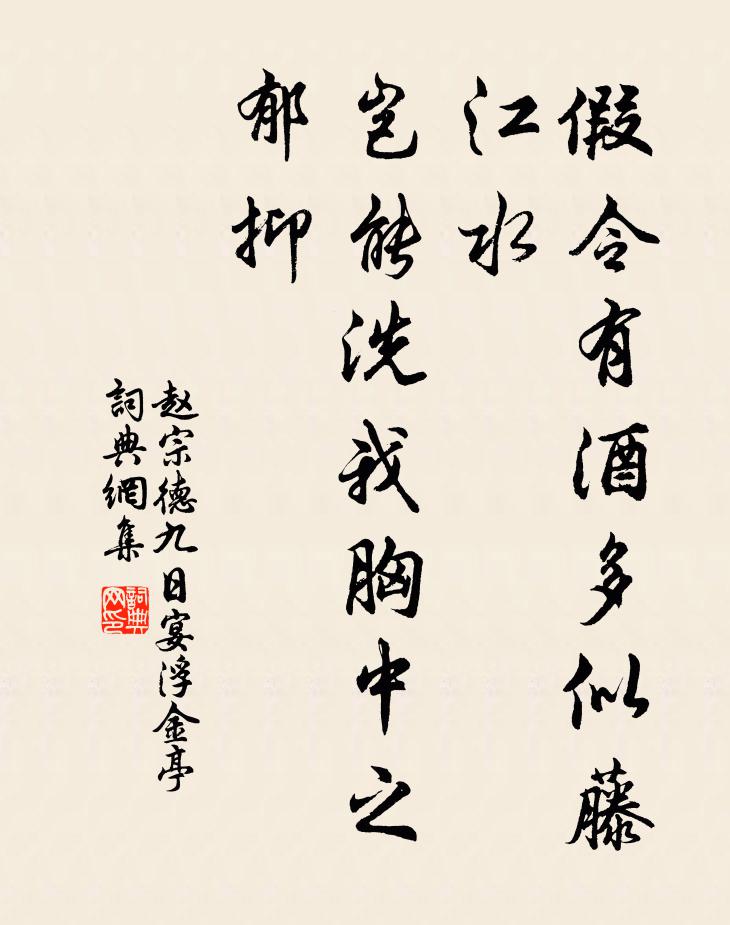 假令有酒多似藤
江水
岂能洗我胸中之
郁抑
赵宗德九日宴浮金亭
詞典網集
詞典
网印